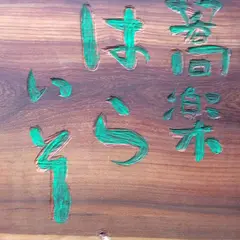 楽
はら
いそ